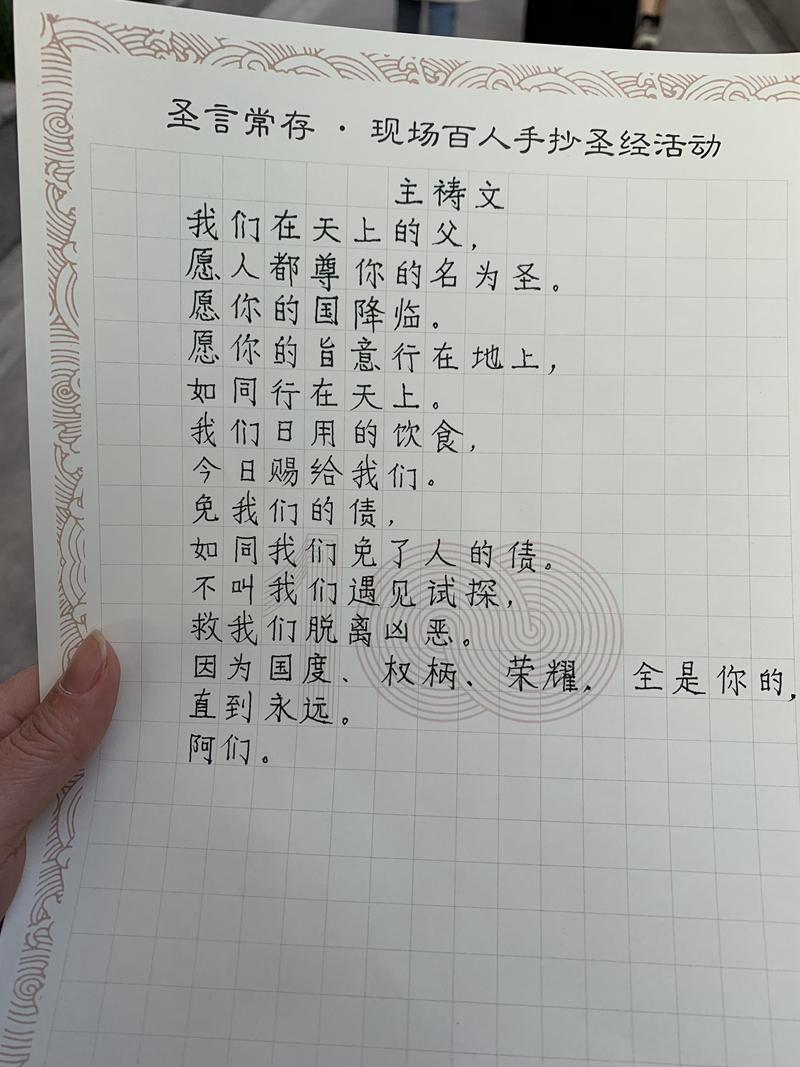 圣言常存·现场百人手抄圣经活动
主祷文
我们在天上的父，
愿人都尊你的名为圣。
愿你的国降临。
愿你的旨意行在地上，
如同行在天上。
我们日用的饮食，
今日赐给我们。
免我们的债，
如同我们免了人的债。
不叫我们遇见试探，
救我们脱离凶恶。
因为国度、权柄、荣耀、全是你的，
直到永远。
阿们。